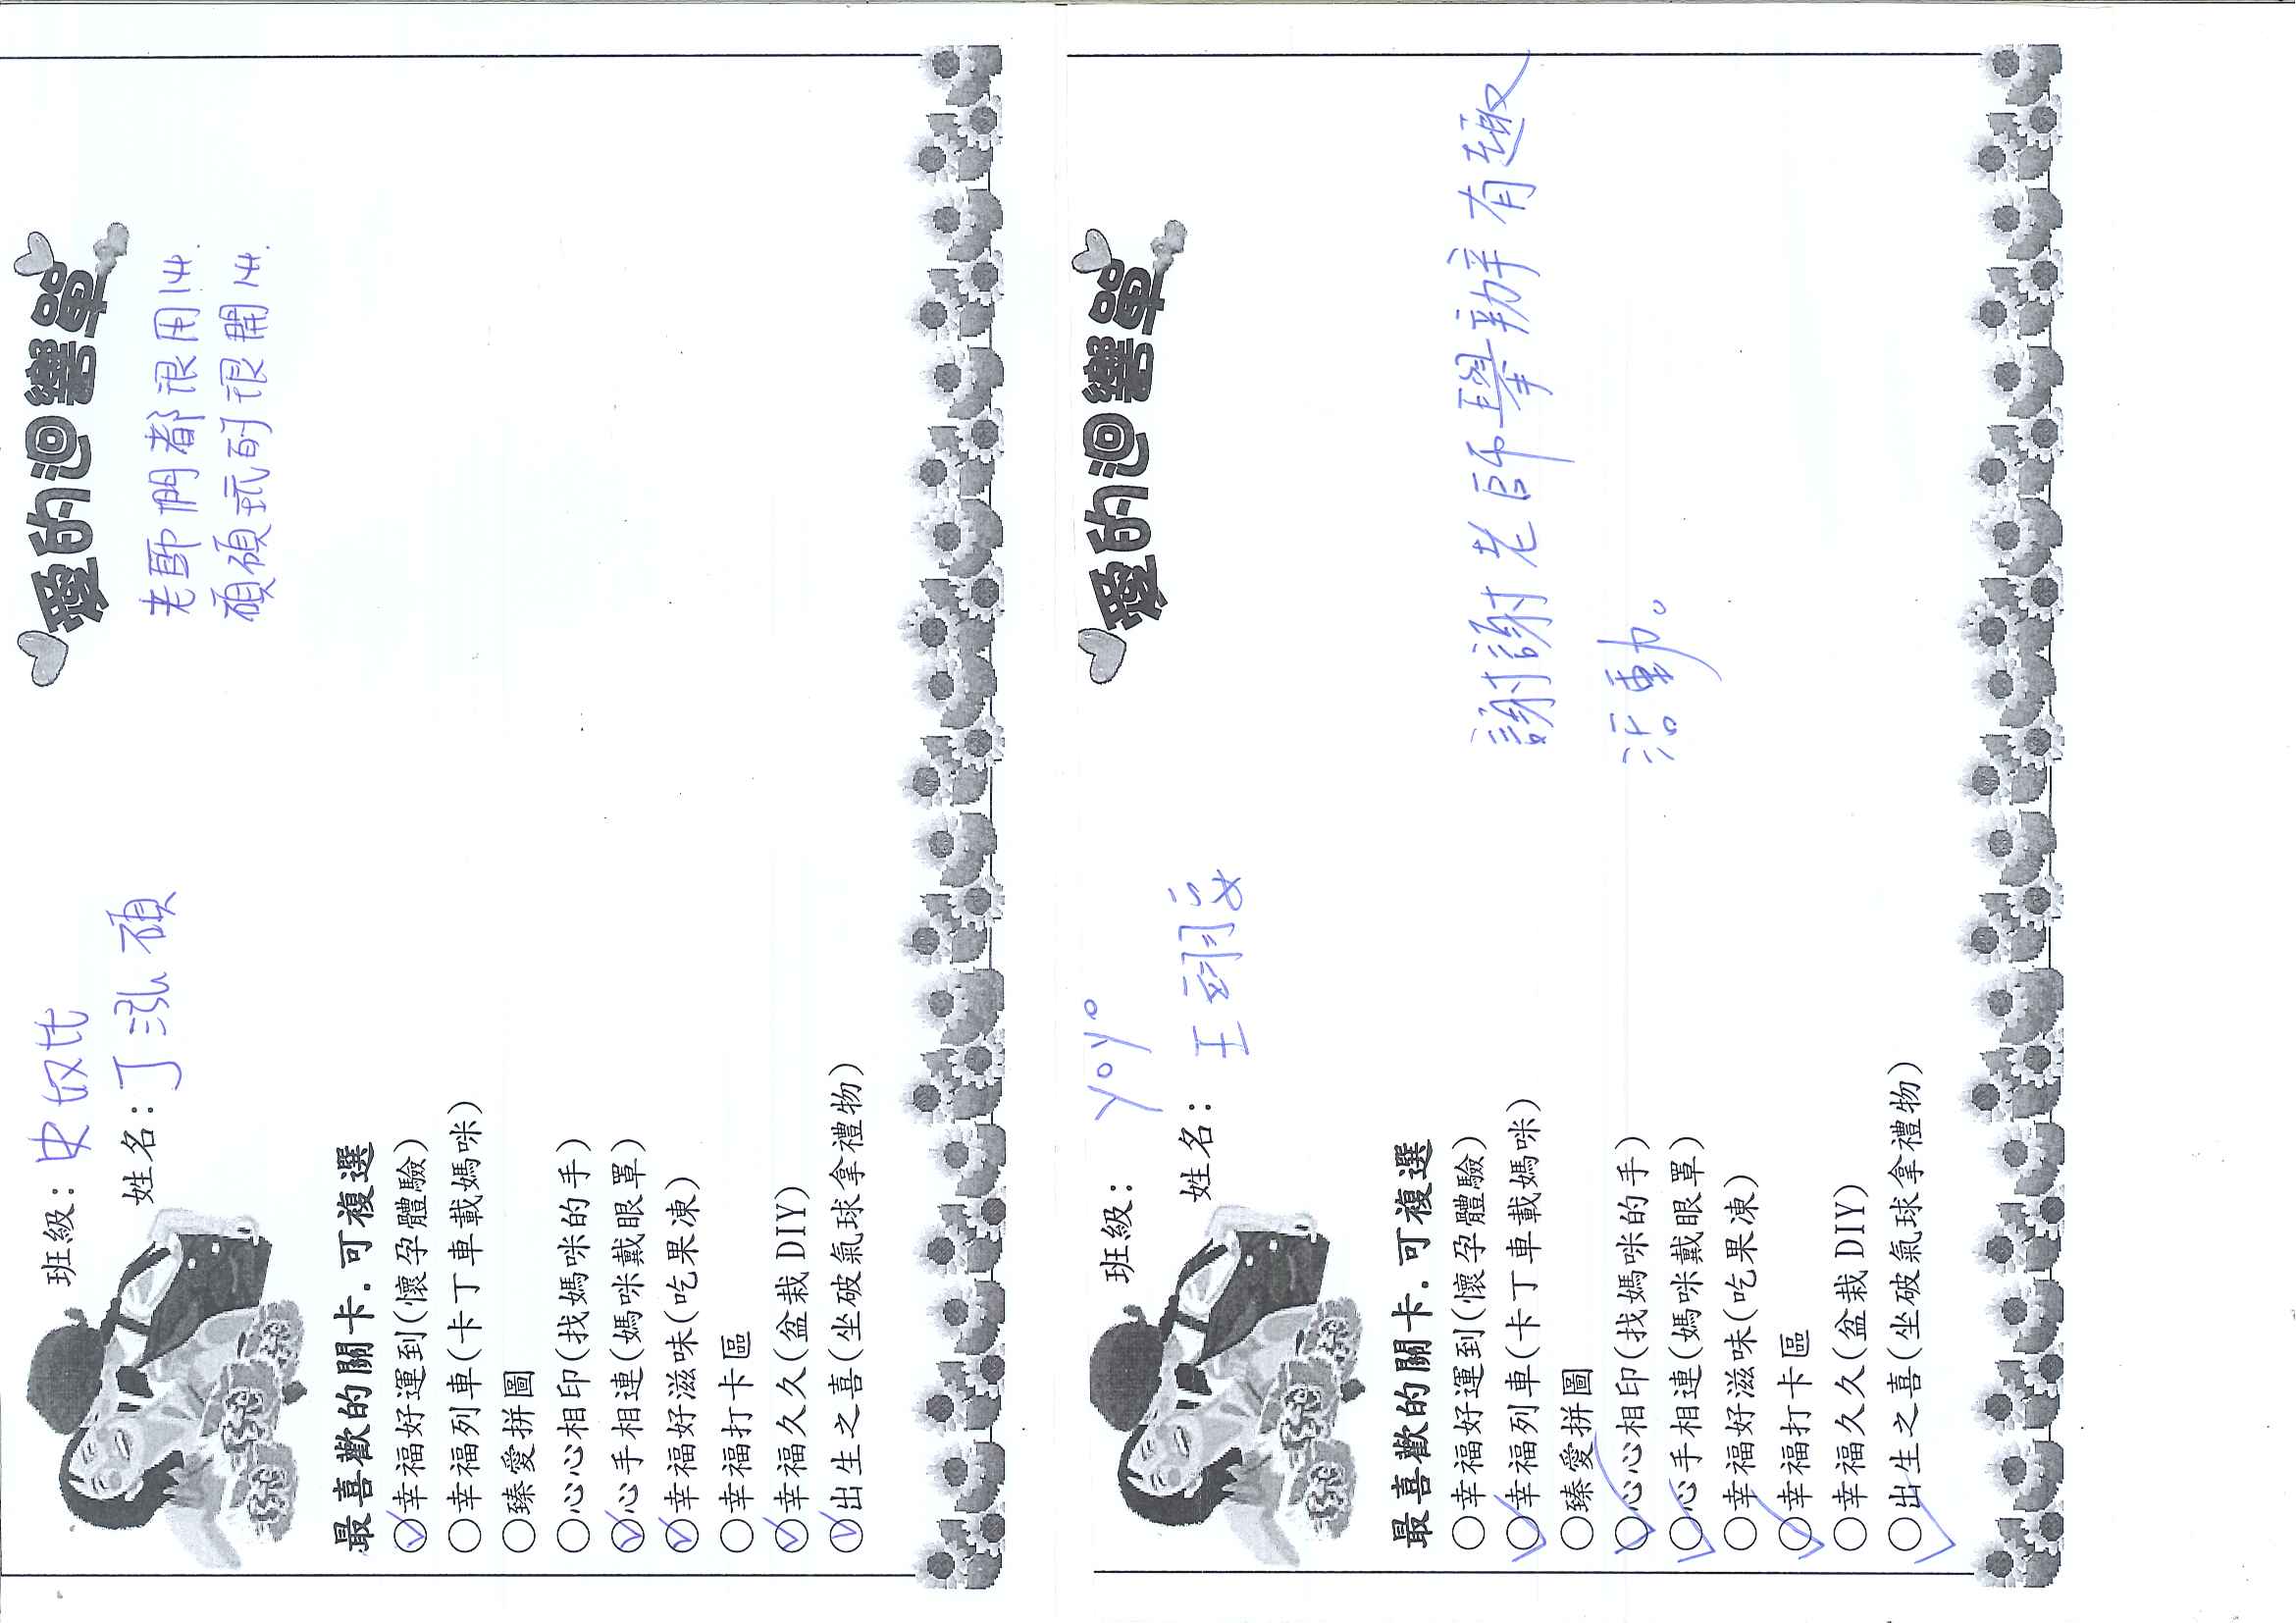 愛的迴響單
班級：史奴比
姓名：丁泓碩
老師們都很用心
碩碩玩的很開心
最喜歡的關卡.可複選
幸福好運到(懷孕體驗)
幸福列車(卡丁車載媽咪)
臻愛拼圖
心心相印(找媽咪的手)
心手相連(媽咪戴眼罩)
幸福好滋味(吃果凍)
幸福打卡區
幸福久久(盆栽DIY)
出生之喜(坐破氣球拿禮物)
愛的迴響單
班級：yoyo
姓名：王翊安
謝謝老師舉辦有趣
活動。
最喜歡的關卡.可複選
幸福好運到(懷孕體驗)
幸福列車(卡丁車載媽咪)
臻愛拼圖
心心相印(找媽咪的手)
心手相連(媽咪戴眼罩)
幸福好滋味(吃果凍)
幸福打卡區
幸福久久(盆栽DIY)
出生之喜(坐破氣球拿禮物)